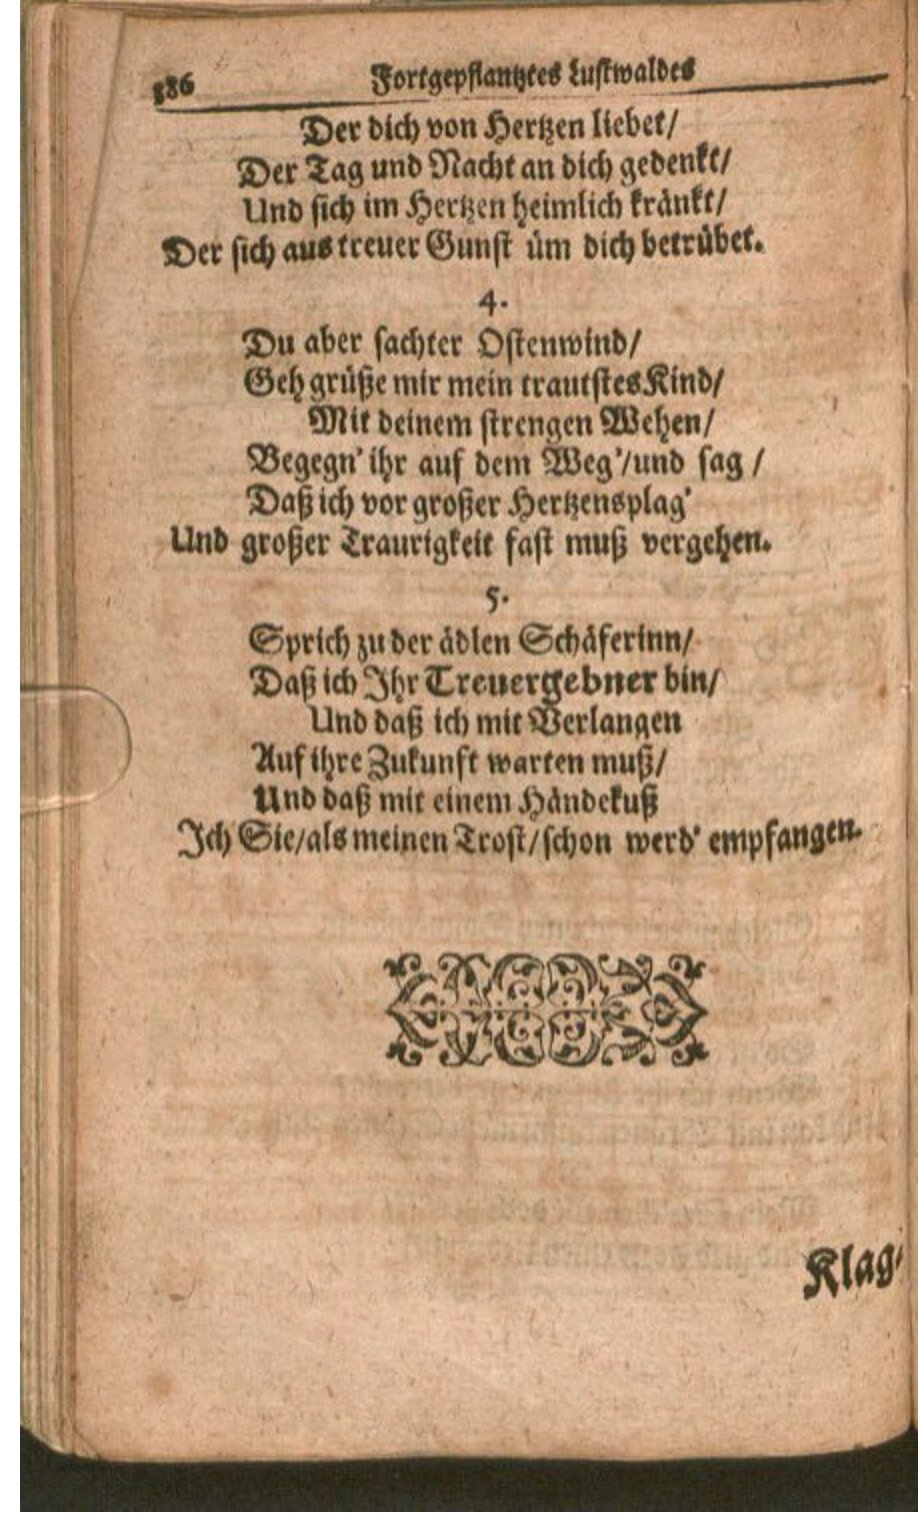 186 Fortgepflantztes Lustwaldes
Der dich von Hertzen liebet/
Der Tag und Nacht an dich gedenkt/
Und sich im Hertzen heimlich kränkt/
Der sich aus treuer Gunst üm dich betrübet.
4.
Du aber sachter Ostenwind/
Geh grüße mir mein trautstes Kind/
Mit deinem strengen Wehen/
Begegn' ihr auf dem Weg'/und sag /
Daß ich vor großer Hertzensplag'
Und großer Traurigkeit fast muß vergehen.
5.
Sprich zu der ädlen Schäferinn/
Daß ich Ihr Treuergebner bin/
Und daß ich mit Verlangen
Auf ihre Zukunft warten muß/
Und daß mit einem Händekuß
Ich Sie/als meinen Trost/schon werd' empfangen.
Klag-